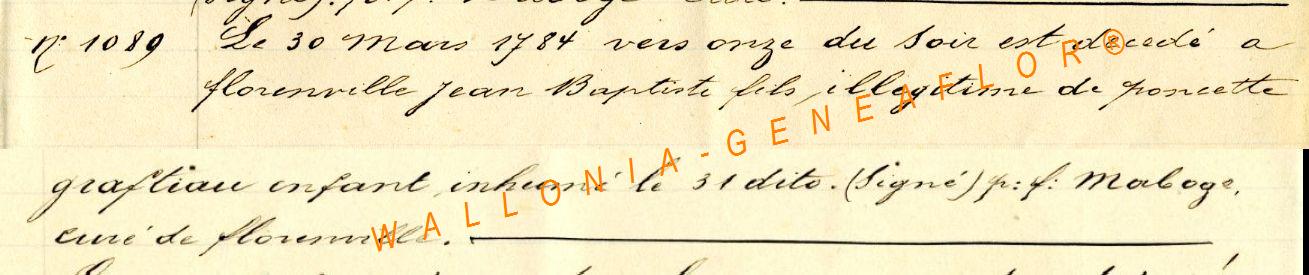 n° 1089 Le 30 Mars 1784 vers onze du Soir est décedé a
florenville Jean Baptiste fils illegitime de poncette
graftiau enfant inhumé le 31 dito. (Signé) p: f: Maboge,
curé de florenville.
WALLONIA-GENEAFLOR®